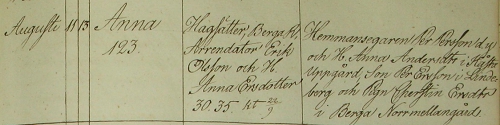 Augusti 11 13 Anna
123.
Hagsätter, Berga R,
Arrendator Erik
Olsson och H.
Anna Ersdotter
30. 35 28/9
Hemmansegaren Per Persson d.y
och H. Anna Andersdtr i
Uppgård, Son Per Ersson i Lände-
berg och Pign Cherstin Ersdtr
i Berga Norrmellangård.